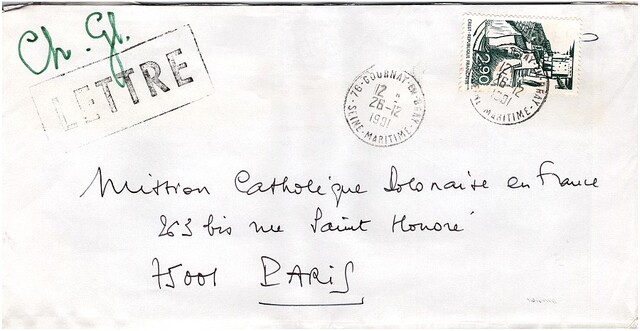 Ch. Gl.
LETTRE
76-GOURNAY-EN-BRAY
12 H
26-12
1981
SEINE-MARITIME
2,90
12
26-12
1981
SEINE-MARITIME
Mission Catholique Polonaise en France
263 bis rue Saint Honoré
75001 PARIS